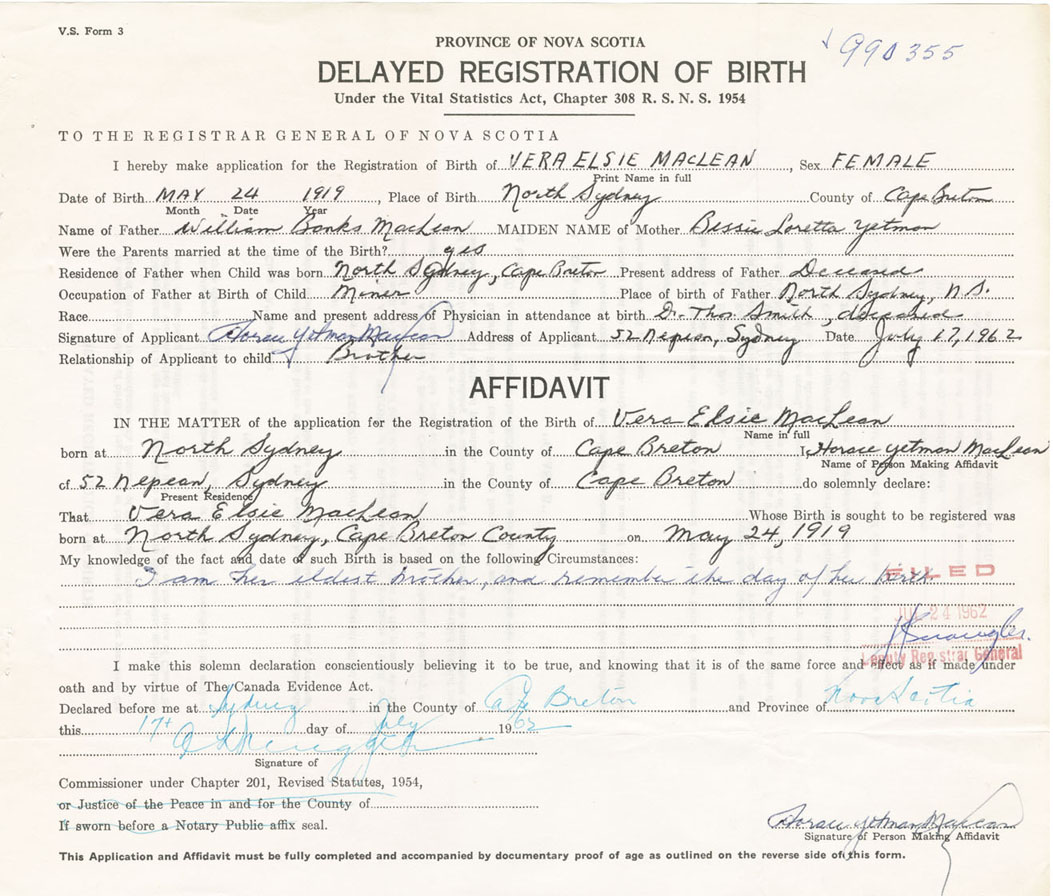 V.S. Form 3
990355
PROVINCE OF NOVA SCOTIA
DELAYED REGISTRATION OF BIRTH
Under the Vital Statistics Act, Chapter 308 R. S. N. S. 1954
TO THE REGISTRAR GENERAL OF NOVA SCOTIA
I hereby make application for the Registration of Birth of VERA ELSIE MACLEAN, Sex FEMALE
Print Name in full
Date of Birth MAY 24 1919, Place of Birth North Sydney County of Cape Breton
Month Date Year
Name of Father William Banks MacLean MAIDEN NAME of Mother Bessie Loretta Yetman
Were the Parents married at the time of the Birth? yes
Residence of Father when Child was born North Sydney, Cape Breton Present address of Father Deceased
Occupation of Father at Birth of Child Miner Place of birth of Father North Sydney, N.S.
Race Name and present address of Physician in attendance at birth Dr. Thos. Smith, deceased
Signature of Applicant Horace Yetman MacLean Address of Applicant 52 Nepean, Sydney Date July 17, 1962
Relationship of Applicant to child Brother
AFFIDAVIT
IN THE MATTER of the application for the Registration of the Birth of Vera Elsie MacLean
Name in full
born at North Sydney in the County of Cape Breton I, Horace Yetman MacLean
Name of Person Making Affidavit
of 52 Nepean, Sydney in the County of Cape Breton do solemnly declare:
Present Residence
That Vera Elsie MacLean Whose Birth is sought to be registered was
born at North Sydney, Cape Breton County on May 24, 1919
My knowledge of the fact and date of such Birth is based on the following Circumstances:
I am her eldest brother, and remember the day of her birth.
FILED
24 1962
Deputy Registrar General
I make this solemn declaration conscientiously believing it to be true, and knowing that it is of the same force and effect as if made under
oath and by virtue of The Canada Evidence Act.
Declared before me at Sydney in the County of Cape Breton and Province of Nova Scotia
this 17th day of July 1962
Signature of
Commissioner under Chapter 201, Revised Statutes, 1954,
or Justice of the Peace in and for the County of
If sworn before a Notary Public affix seal.
Horace Yetman MacLean
Signature of Person Making Affidavit
This Application and Affidavit must be fully completed and accompanied by documentary proof of age as outlined on the reverse side of this form.